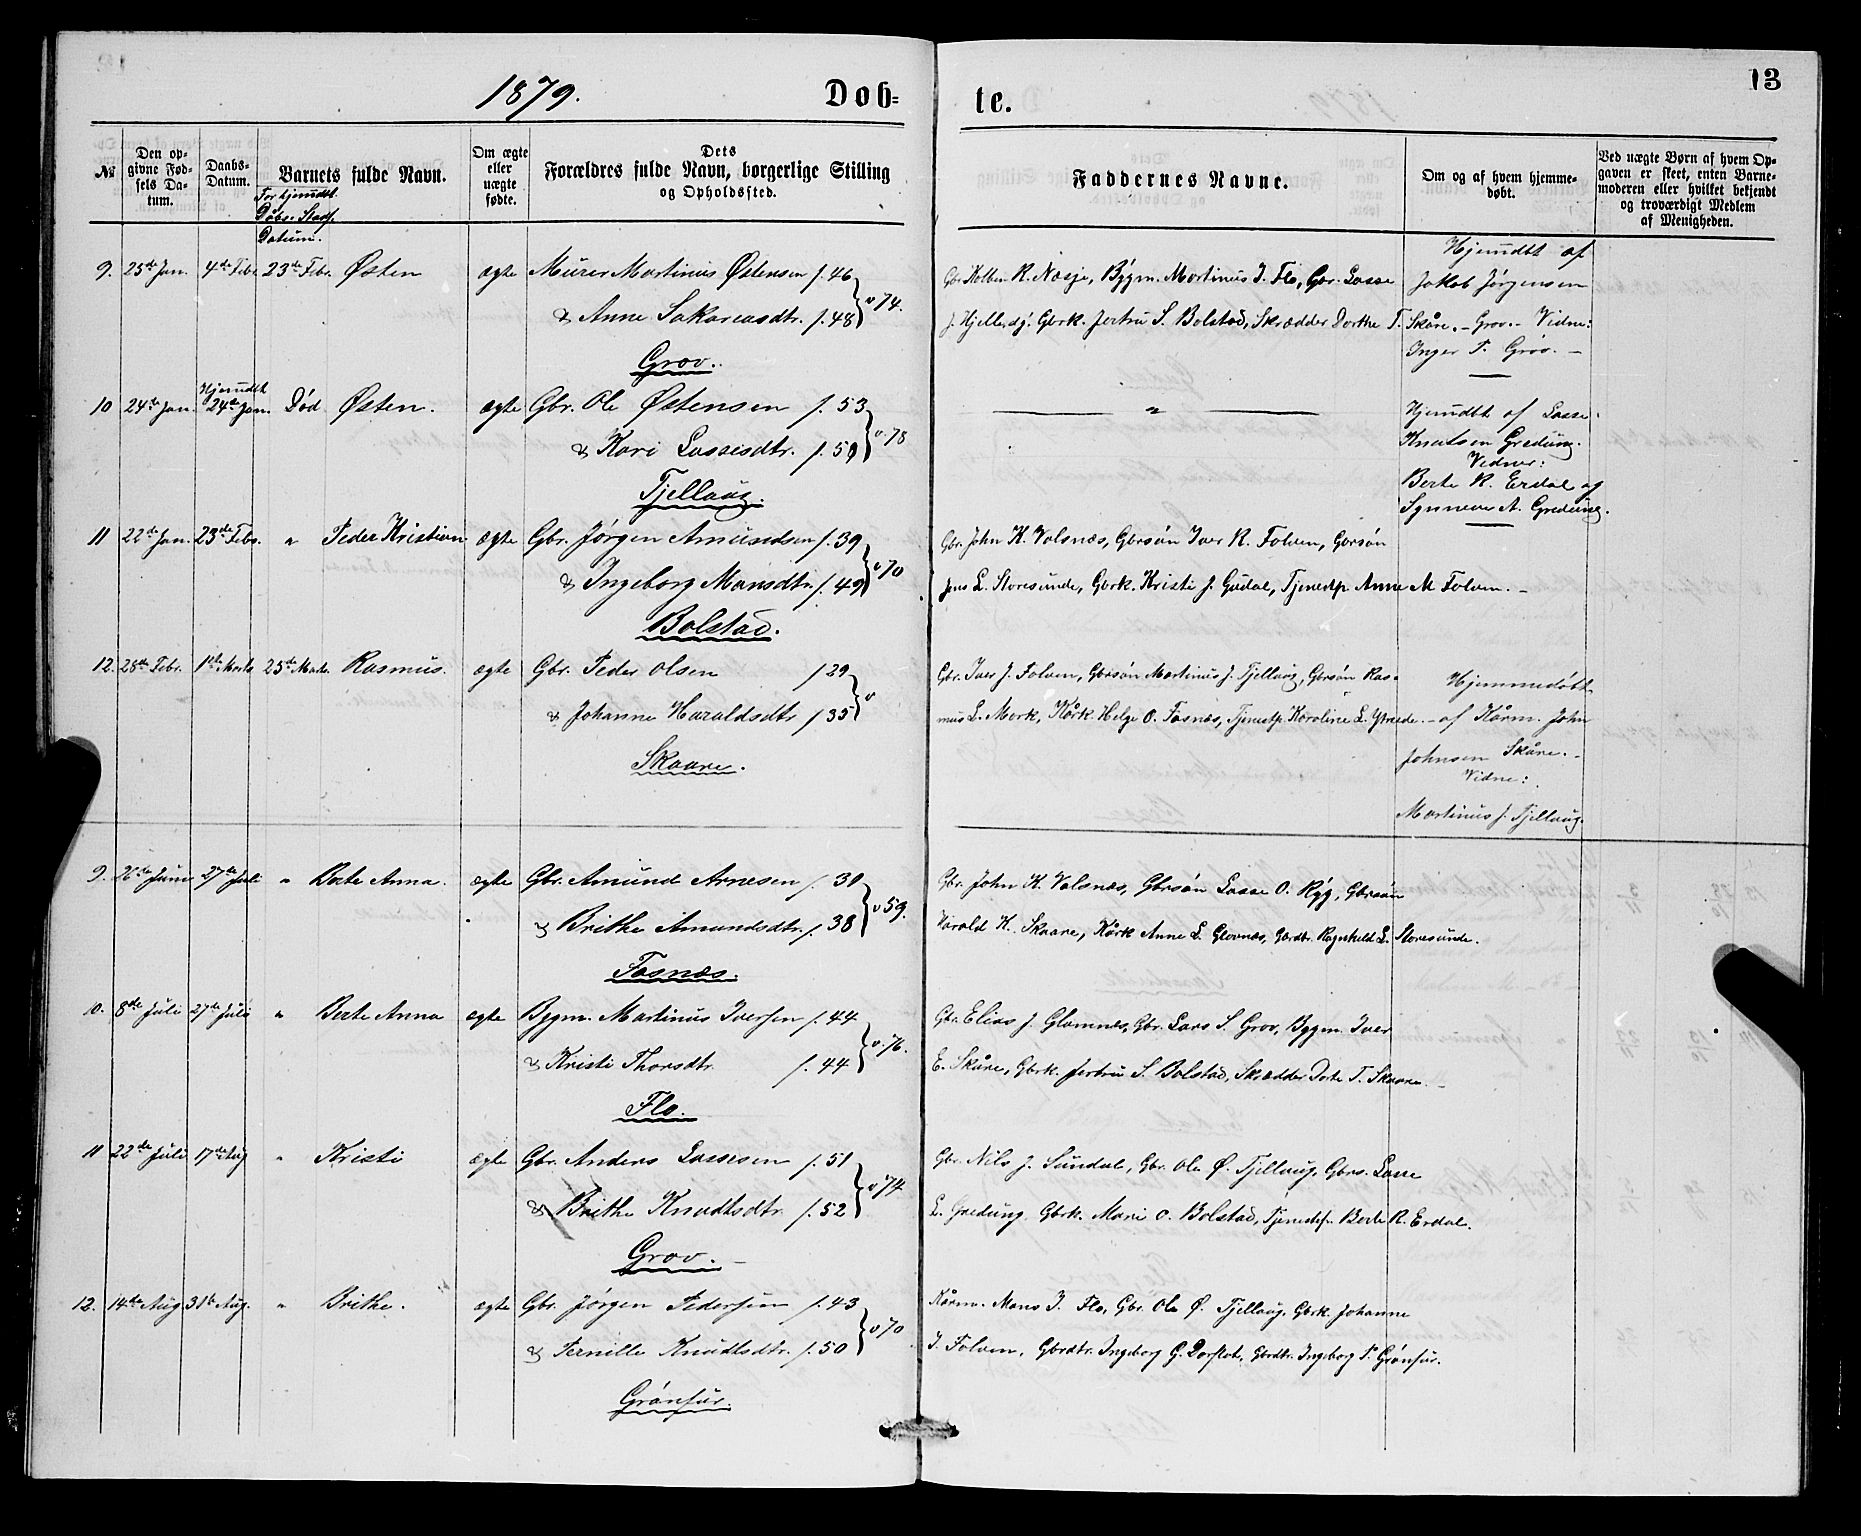 1879. Døb= te. 13
№
Den op-
givne Fød-
sels Da-
tum.
Daabs-
Datum.
Barnets fulde Navn.
For hjemdbt.
Døbes Stadf.
Datum.
Om ægte
eller
uægte
fødte.
Dets
Forældres fulde Navn, borgerlige Stilling
og Opholdssted.
Faddernes Navne.
Om og af hvem hjemme-
døbt.
Ved uægte Børn af hvem Op-
gaven er skeet, enten Barne-
moderen eller hvilket bekjendt
og troværdigt Medlem
af Menigheden.
9. 25de Jan. 4de Febr. 23de Febr. Østen ægte Murer Martinus Østensen f. 46
& Anne Sakariasdtr. f. 48 } v 74.
Grov.
Gbr. Kolben R. Nesje, Bygm. Martinus I. Flo, Gbr. Lasse
J. Hjelle, Gbrk. Jertru S. Bolstad, Skrædder Dorthe T. Skåre. –
Hjemdbt af
Jakob Jørgensen
Grov. – Vidne:
Inger P. Grov. –
10 24de Jan. Hjemdbt 24de Jan. Død Østen. ægte Gbr. Ole Østensen f. 53
& Kari Lassesdtr. f. 50 } v. 78
Tjellaug.
"
Hjemdbt af Lasse
Knutsen Gredung.
Vidner:
Berte R. Erdal og
Synneve A. Gredung.
11 22de Jan. 23de Febr. " Peder Kristian ægte Gbr. Jørgen Amundsen f. 39
& Ingeborg Monsdtr. f. 49 } v 70
Bolstad.
Gbr. John K. Valsnæs, Gbrsøn Iver R. Folven, Gbrsøn
Jens L. Storesunde, Gbrk. Kristi J. Gudal, Tjenestp. Anne M. Folven. –
12. 28de Febr. 1ste Marts 25de Marts. Rasmus. ægte Gbr. Peder Olsen f 29
& Johanne Haraldsdtr f 35 } v
Skaare.
Gbr. Iver J. Folven, Gbrsøn Martinus J. Tjellaug, Gbrsøn Ras-
mus L. Mork, Kårk Helge O. Fosnæs, Tjenestp. Karoline L. Ytreeide. –
Hjemmedøbt
af Kårm. John
Johnsen Skåre. –
Vidne:
Martinus J. Tjellaug.
9. 26de Juni 27de Juli " Berte Anna. ægte Gbr. Amund Arnesen f. 30
& Brithe Amundsdtr. f. 38 } v 59.
Fosnæs.
Gbr. John K. Valsnæs, Gbrsøn Lasse O. Ryg, Gbrsøn
Harald H. Skaare, Kårk Anne L. Glovnæs, Gbrdtr. Ragnhild L. Storesunde.
10. 8de Juli 27de Juli " Berte Anna ægte Bygm. Martinus Iversen f. 44
& Kristi Thorsdtr. f. 44 } v. 76.
Flo.
Gbr. Elias J. Glomnes, Gbr. Lars S. Grov, Bygm. Iver
E. Skåre, Gbrk. Jertru S. Bolstad, Skrædder Dorte T. Skaare. –
11 22de Juli 17de Aug " Kristi ægte Gbr. Anders Lassesen f. 51
& Brithe Knudtsdtr. f. 52 } v 74
Grov. –
Gbr. Nils J. Sundal, Gbr. Ole Ø. Tjellaug, Gbrs. Lasse
L. Gredung, Gbrk. Mari O. Bolstad, Tjenestp. Berte R. Erdal.
12. 14de Aug. 31te Aug. " Brithe. ægte Gbr. Jørgen Pedersen f. 43
& Pernille Knudtsdtr. f. 50 } v 70.
Grønfur.
Kårm. Mons I. Flo, Gbr. Ole Ø. Tjellaug, Gbrk. Johanne
I. Folven, Gbrdtr. Ingeborg G. Dorflot, Gbrdtr. Ingeborg P. Grønfur.